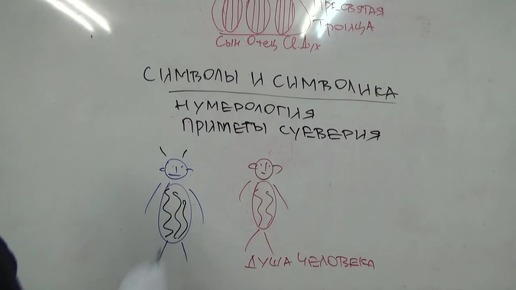 Пресвятая
Троица
Сын Отец Св. Дух
СИМВОЛЫ И СИМВОЛИКА
НУМЕРОЛОГИЯ
ПРИМЕТЫ СУЕВЕРИЯ
ДУША ЧЕЛОВЕКА